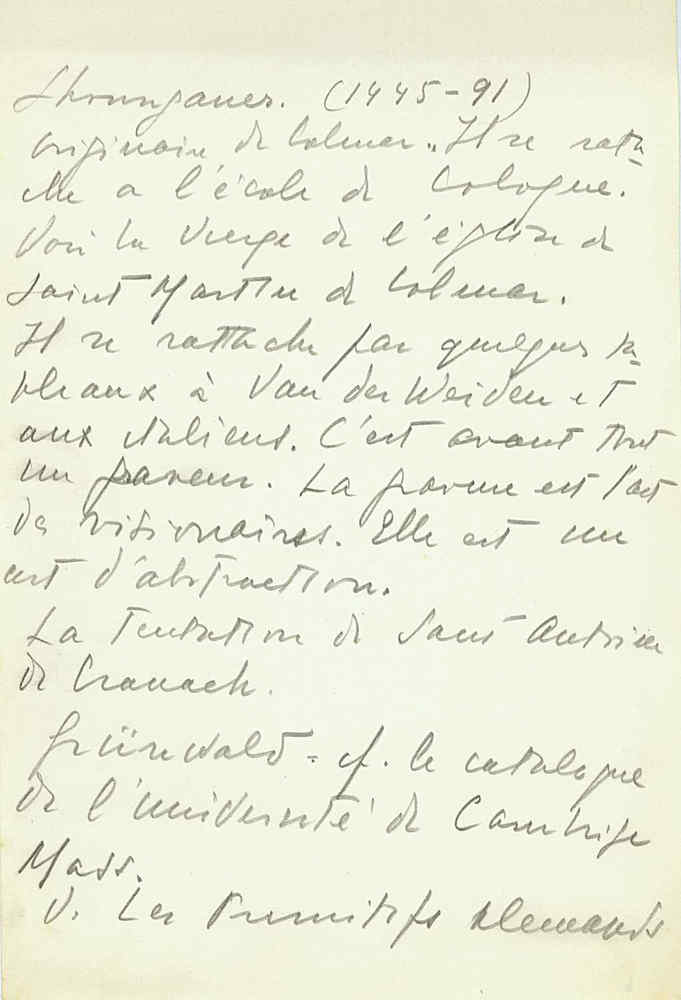 Shoungauer. (1445-91)
originaire de Colmar. Il se ratta
che a l'école de Cologne.
Voir la Vierge de l'église de
Saint Martin de Colmar.
Il se rattache par quelques ta
bleaux à Van der Weiden et
aux italiens. C'est avant tout
un graveur. La gravure est l'art
des visionnaires. Elle est un
art d'abstraction.
La Tentation de Saint Antoine
de Cranach.
Grünewald = cf. le catalogue
de l'université de Cambrige
Mass.
V. Les Primitifs Allemands